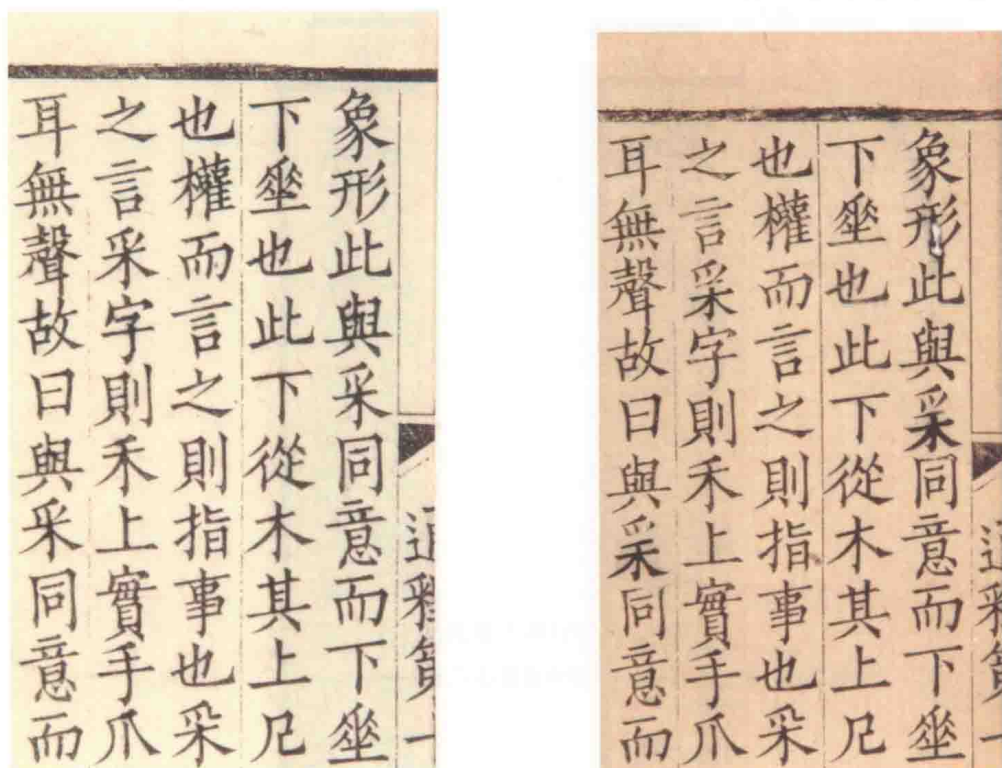 通釋第
象形此與采同意而下埀
下埀也此下從木其上几
也權而言之則指事也采
之言采字則禾上實手爪
耳無聲故曰與采同意而
通釋第
象形此與采同意而下埀
下埀也此下從木其上几
也權而言之則指事也采
之言采字則禾上實手爪
耳無聲故曰與采同意而